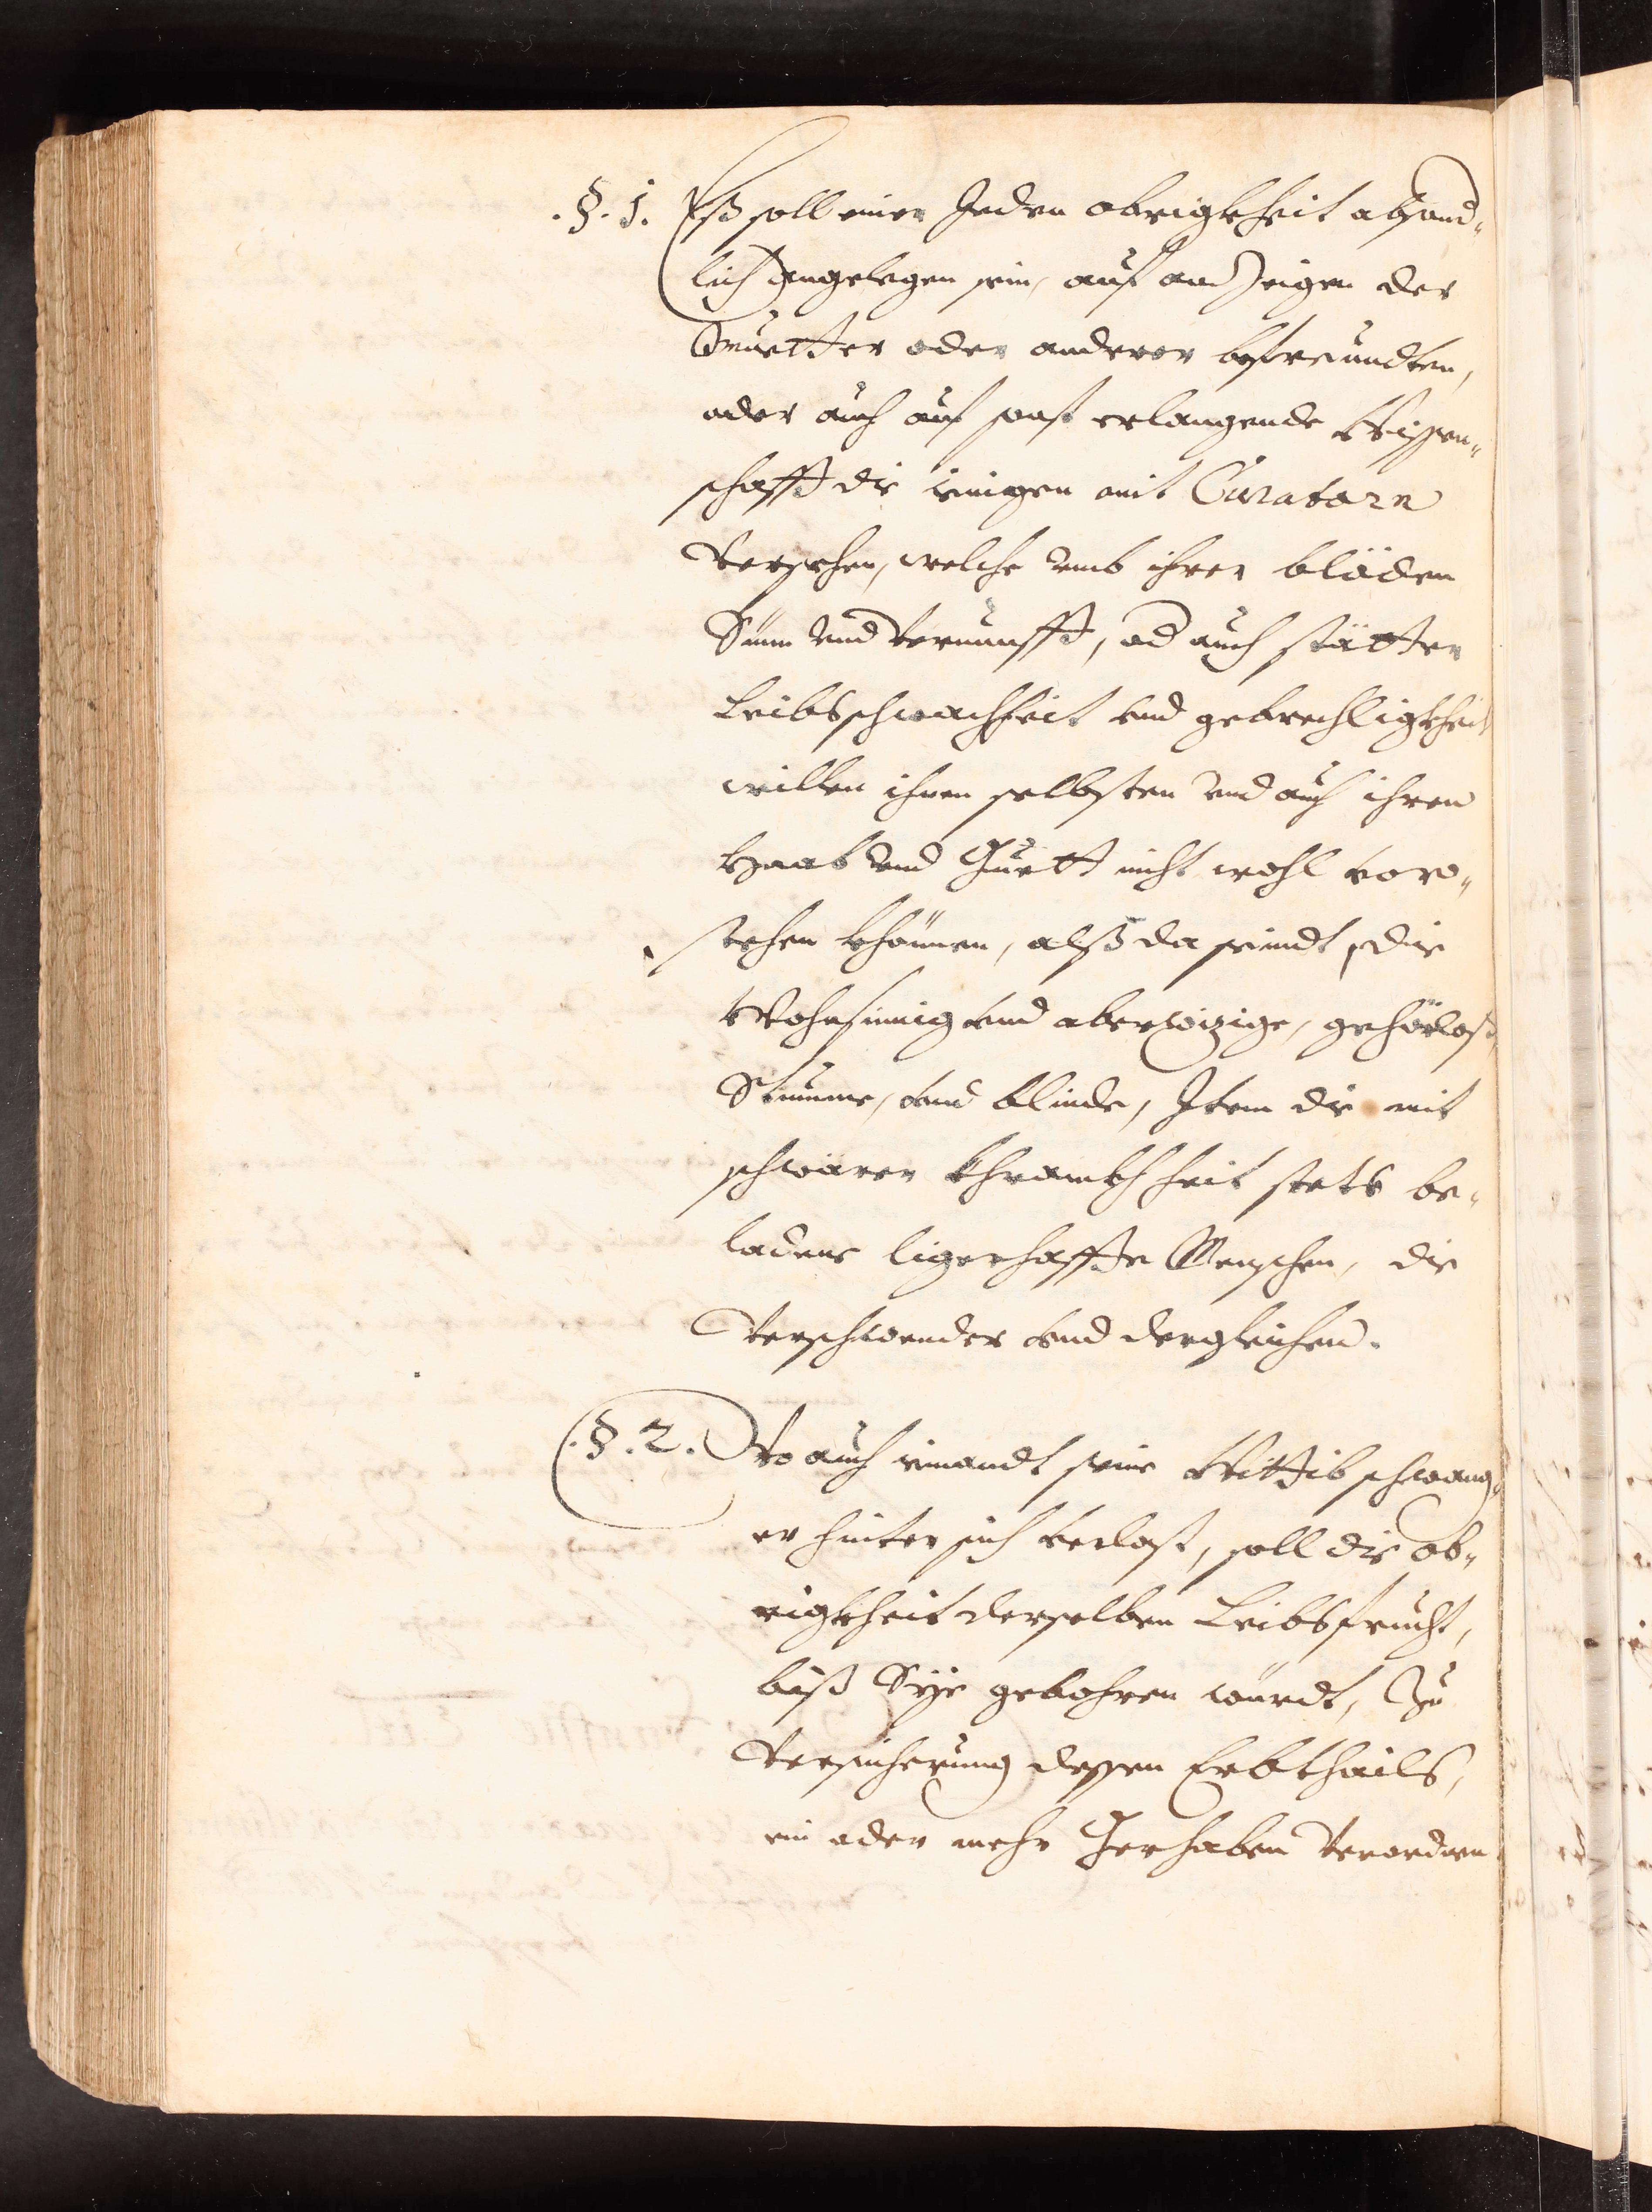 .§. 1. Eß soll einer Jeden obrigkheit absond„
lich angelegen sein, auf an Zeigen der
Muetter oder anderer befreundten,
oder auch auf sonst erlangende Wissen„
schafft die ienigen mit Curatorn
Versehen, welche vmb ihrer blöden
Sinn vnd Vernunfft, od auch stätter
Leibsschwachheit vnd gebrechligkheit
willen ihnen selbsten vnd auch ihren
Haab vnd Guett nicht wohl vor„
stehen khönnen, alß da seindt, die
Wohnsinnig vnd aberwizige, gehörloß,
Stumme, vnd blinde, Item die mit
schwärer Khranckhheit stets be„
ladene ligerhaffte Menschen, die
Verschwender vnd dergleichen.
.§. 2. Wo auch iemandt seine Wittib schwang„
er hinter sich verlast, soll die ob„
rigkheit derselben Leibsfrucht,
biß Sye gebohren würdt, Zu
Versicherung dessen Erbthails,
ein oder mehr Gerhaben Verordnen